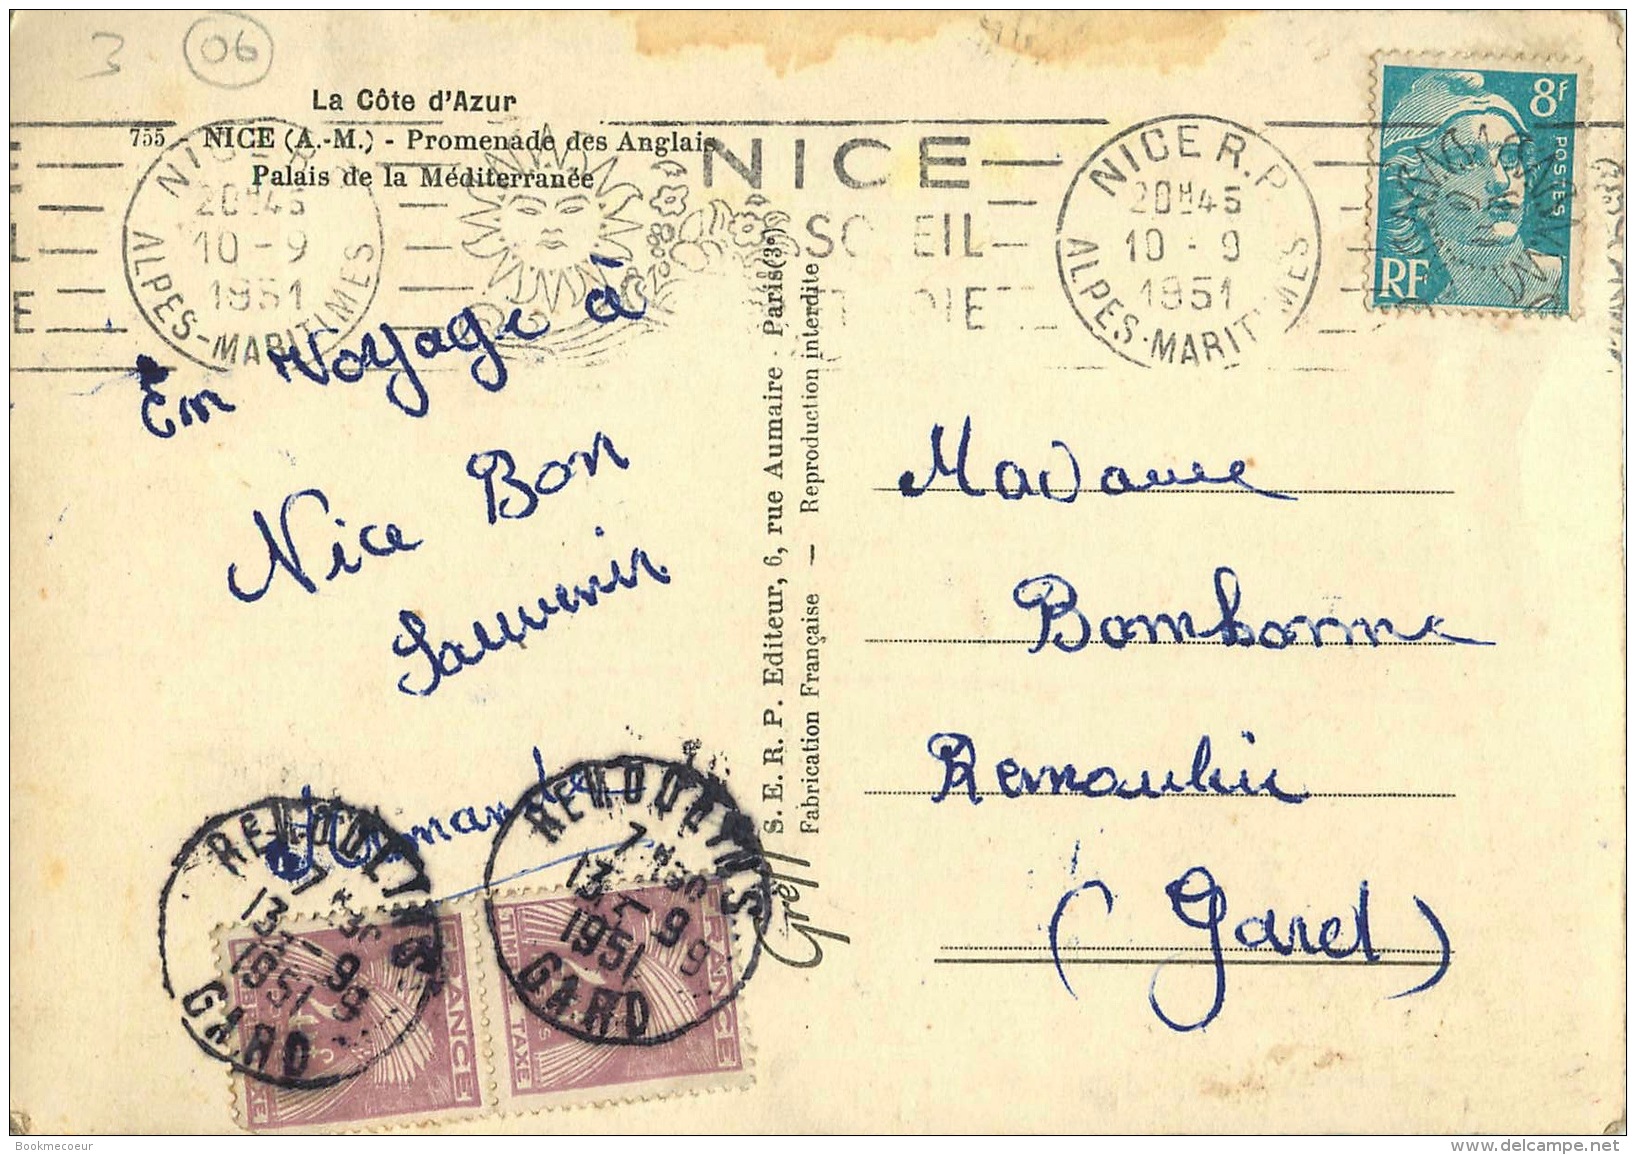 3 06
La Côte d'Azur
755 NICE (A.-M.) - Promenade des Anglais
Palais de la Méditerranée
NICE R.P
20H45
10 - 9
1951
ALPES-MARITIMES
NICE
SOLEIL
NICE R.P
20H45
10 - 9
1951
ALPES-MARITIMES
8F
POSTES
RF
En Voyage à
Nice Bon
Souvenir
S. E. R. P. Editeur, 6, rue Aumaire - Paris (3e)
Fabrication Française — Reproduction interdite
Greff
Madame
Bomhomme
Remoulin
(Gard)
REMOULINS
7 H30
13 - 9
1951
GARD
REMOULINS
7 H30
13 - 9
1951
GARD
FRANCE
TIMBRE TAXE
FRANCE
TIMBRE TAXE
Bookmecoeur
www.delcampe.net